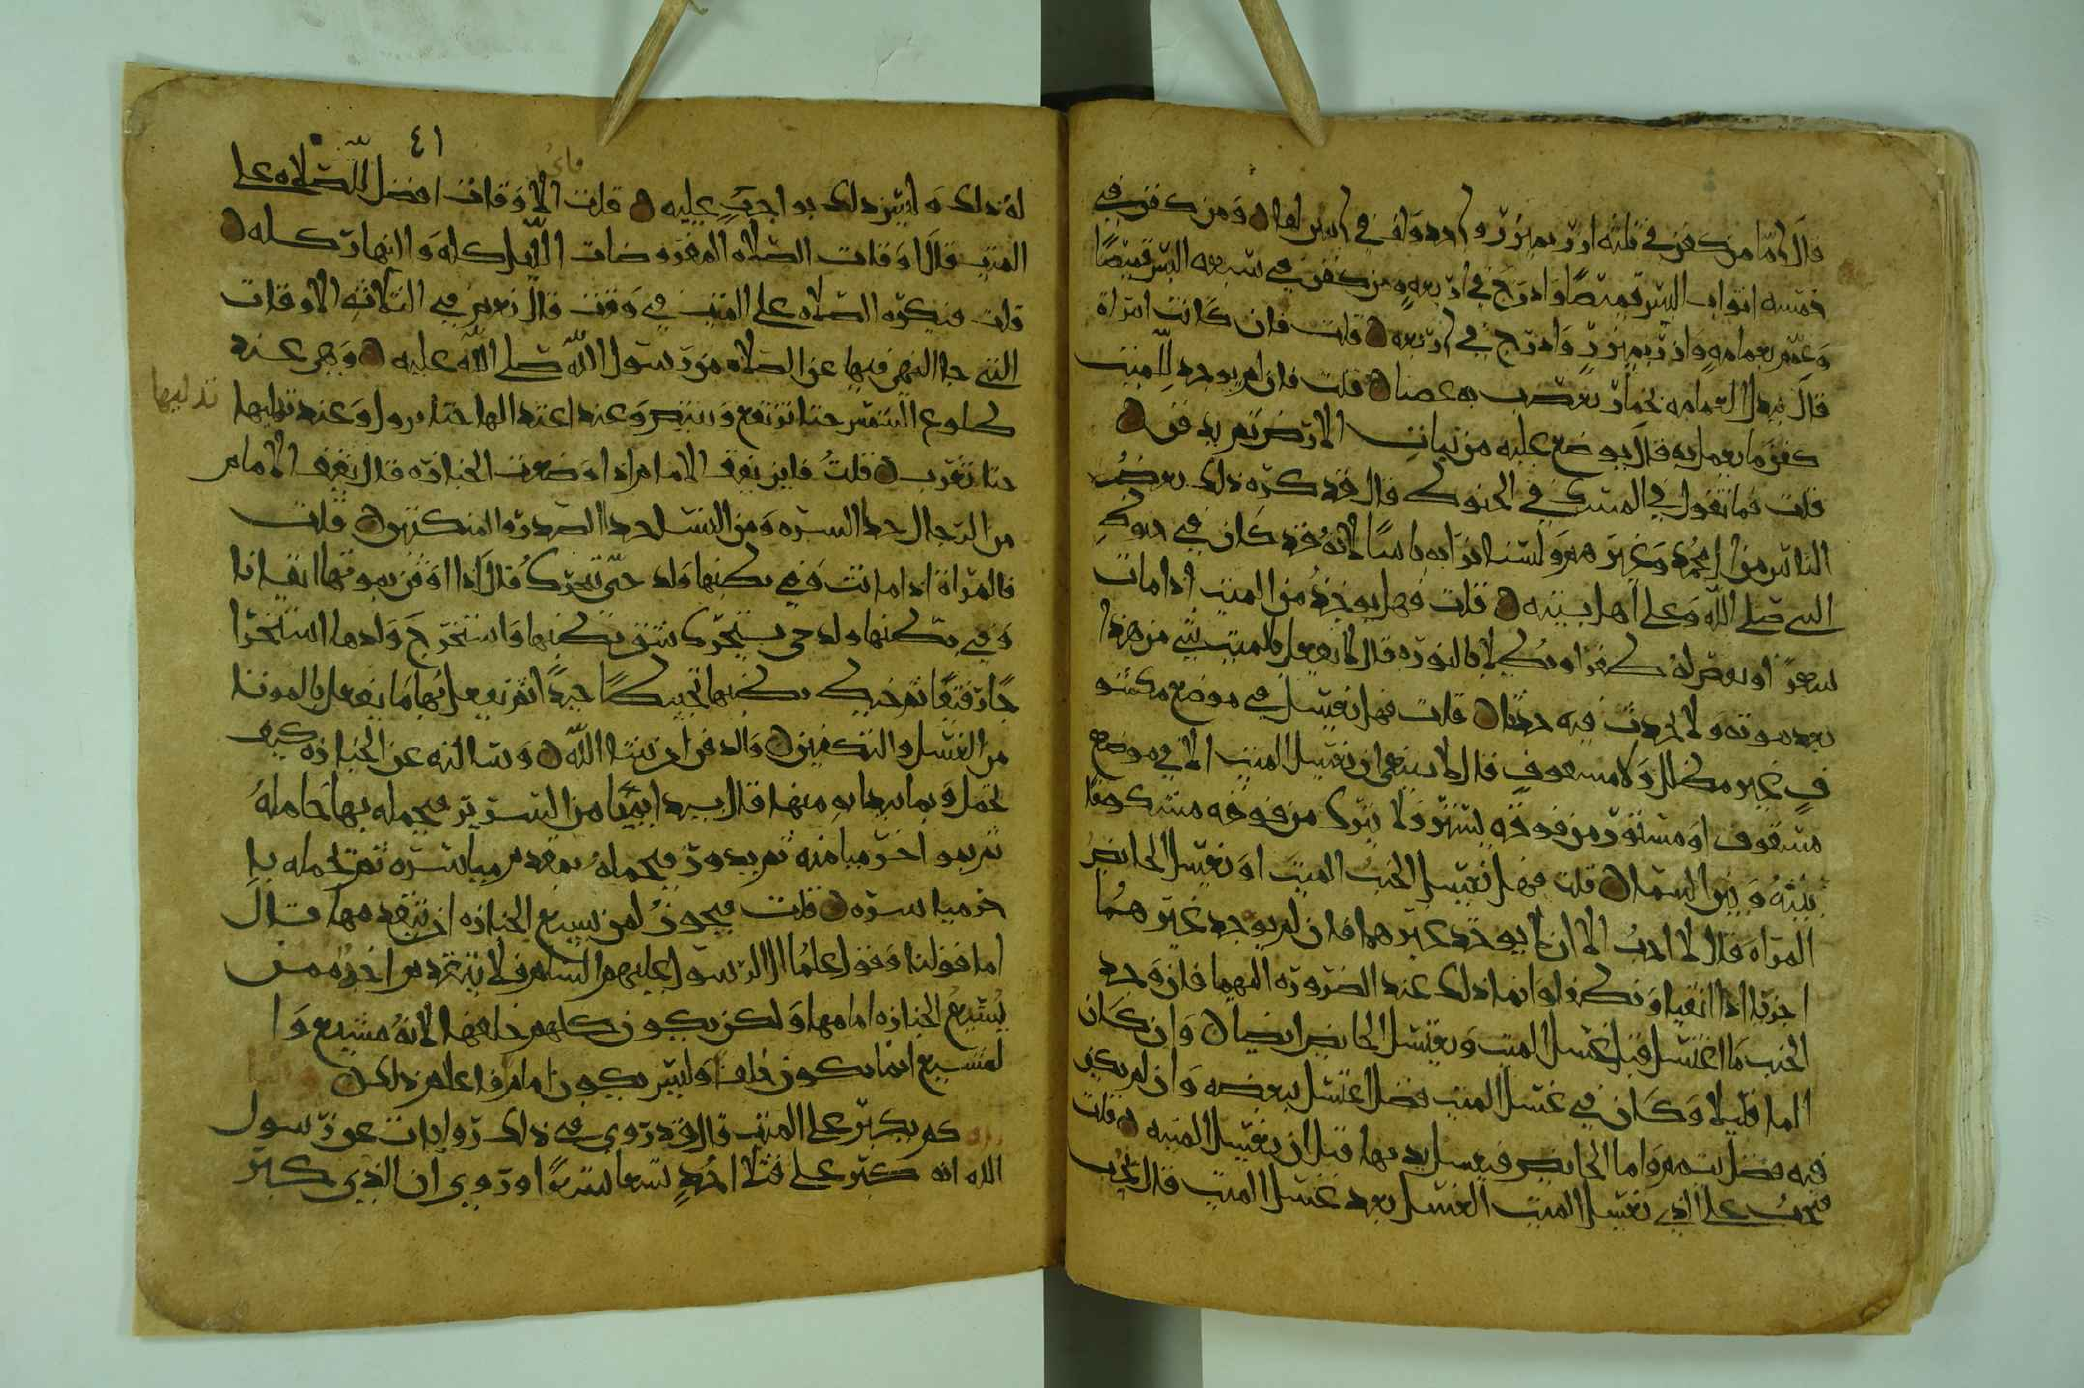 قال اما من كفن في ثلثه ازر بميزر واحد ولف في اثنين لفا ومن كفن في
خمسه اثواب البس قميصًا وادرج في اربعه ومن كفن في سبعه البس قميصًا
وعمم بعمامه وازر بميزر وادرج في اربعه قلت فان كانت امراة
قال تبدل العمامه بخمار تعصب به عصبا قلت فان لم يوجد للميت
كفن ما يعمل به قال يوضع عليه من نبات الارض ثم يدفن
قلت فما تقول في المسك في الحنوط قال قد كره ذلك بعض
الناس من وغيرهم ولسنا نرا به باسًا لانه قد كان في حنوط
النبي صلى الله وعلى اهل بيته قلت فهل يوخذ من الميت اذا مات
شعرًا او يقص له ظفرًا او يطلا بالنوره قال لا يفعل بالميت شي من هذا
بعد موته ولا يحدث فيه حدثا قلت فهل يغسل في موضع مكشو
ف غير مظلل ولا مسقوف قال لا ينبغي ان يغسل الميت الا في موضع
مسقوف او مستور من فوقه يستر ولا يترك من فوقه منكشفا
بينه وبين السما قلت فهل يغسل الجنب الميت او تغسل الحايض
المراه قال لا احب الا ان لا يوجد غيرهما فان لم يوجد غيرهما
اجزيا اذا انقيا وتطهرا وانما ذلك عند الضروره اليهما فان وجد
الجنب ما اغتسل قبل غسل الميت وتغتسل الحايض ايضا وان كان
الما قليلا وكان في غسل الميت فضل اغتسل ببعضه وان لم يكن
فيه فضل تيمم واما الحايض فتغسل يديها قبل ان تغسل الميته قلت
فيجب على الذي يغسل الميت الغسل بعد غسل الميت قال يجب
٤١
له ذلك وليس ذلك بواجب عليه قلت الاوقات افضل للصلاه على
الميت قال اوقات الصلاه المفروضات الليل كله والنهار كله
قلت فتكره الصلاه على الميت في وقت قال نعم في الثلاثه الاوقات
التي جا النهي فيها عن الصلاه من رسول الله صلى الله عليه وهي عند
طلوع الشمس حتا ترتفع وتبيض وعند اعتدالها حتا تزول وعند تدليها
تدليها
حتا تغرب قلتُ فاين يقف الامام اذا وضعت الجنازه قال يقف الامام
من الرجال حذا السره ومن النسا حذا الصدر والمنكبين قلت
فالمراة اذا ماتت وفي بطنها ولد حيّ تحرك قال اذا اوقن بموتها ايقانا
وفي بطنها ولد حي يتحرك شق بطنها واستخرج ولدها استخرا
جًا رفيقًا ثم خيط بطنها تخييطًا جيدًا ثم يفعل بها ما يفعل بالموتا
من الغسل والتكفين والدفن ان شا الله وسالته عن الجنازه كيف
تحمل وبما يبدا به منها قال يبدا بميامن السرير فيحمله بها حامله
ثم بمواخر ميامنه ثم يدور فيحمله بمقدم مياسره ثم تحمله با
خر مياسره قلت فيجوز لمن يشيع الجنازه ان يتقدمها قال
اما قولنا وقول علما ال الرسول عليهم السلم فلا يتقدم احد ممن
يشيع الجنازه امامها ولكن يكون كلهم خلفها لانه مشيع وا
لمشيع انما يكون خلفًا وليس يكون امام فاعلم ذلك
كم يكبر على الميت قال قد روي في ذلك روايات عن رسول
الله انه كبر على قتلا احُدٍ تسعا تسعًا وروي ان الذي كبر